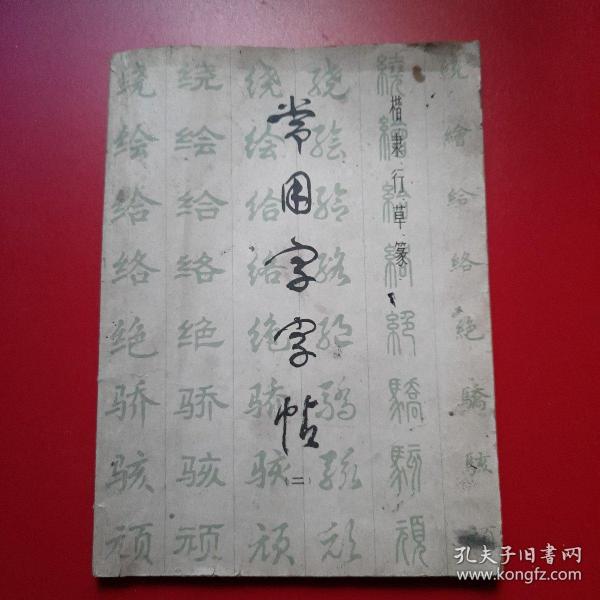 常用字字帖
(二)
楷隶行草篆
绕绘给络绝骄骇顽
绕绘给络绝骄骇顽
绕绘给络绝骄骇顽
绕绘给络绝骄骇顽
繞繪給絡絕驕駭頑
繞繪給絡絕驕駭
孔夫子旧书网
www.kongfz.com